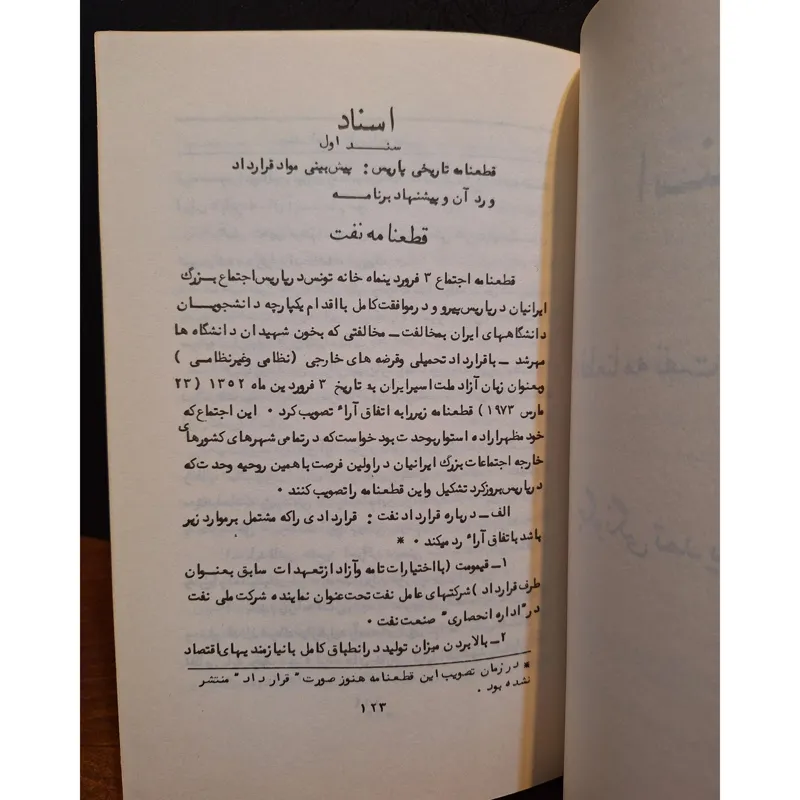 اسناد
سند اول
قطعنامه تاریخی پاریس: پیش‌بینی مواد قرارداد
و رد آن و پیشنهاد برنامه
قطعنامه نفت
قطعنامه اجتماع ۳ فروردینماه خانه تونس در پاریس اجتماع بزرگ
ایرانیان در پاریس پیرو و در موافقت کامل با اقدام یکپارچه دانشجویان
دانشگاههای ایران بمخالفت ــ مخالفتی که بخون شهیدان دانشگاه ها
مهر شد ــ با قرارداد تحمیلی و قرضه های خارجی (نظامی و غیرنظامی)
و بعنوان زبان آزاد ملت اسیر ایران به تاریخ ۳ فروردین ماه ۱۳۵۲ (۲۳
مارس ۱۹۷۳) قطعنامه زیر را به اتفاق آراء تصویب کرد. این اجتماع که
خود مظهر اراده استوار بوحدت بود خواست که در تمامی شهرهای کشورهای
خارجه اجتماعات بزرگ ایرانیان در اولین فرصت با همین روحیه وحدت که
در پاریس بروز کرد تشکیل و این قطعنامه را تصویب کنند.
الف ــ درباره قرارداد نفت: قراردادی را که مشتمل بر موارد زیر
باشد باتفاق آراء رد میکند. *
۱ــ قیمومت (با اختیارات تامه و آزاد از تعهدات سابق بعنوان
طرف قرارداد) شرکتهای عامل نفت تحت عنوان نماینده شرکت ملی نفت
در "اداره انحصاری" صنعت نفت.
۲ــ بالا بردن میزان تولید در انطباق کامل با نیازمندیهای اقتصاد
* در زمان تصویب این قطعنامه هنوز صورت "قرار داد" منتشر
نشده بود.
۱۲۳